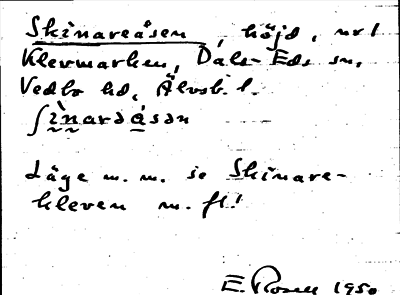 Skinareåsen, höjd, nr 1
Klevmarken, Dals-Eds sn,
Vedbo hd, Älvsb. l.
ʃìnarəåsən
Läge m. m. se Skinare-
kleven m. fl!
E. Rosell 1950